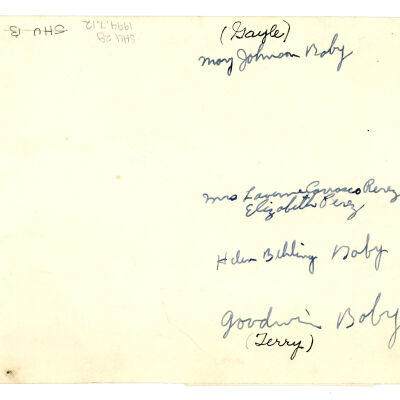 SHU B
SHU 28
1994.7.12
(Gayle)
Mary Johnson Baby
Mrs Laverne Carrasco Perez
Elizabeth Perez
Helen Behling Baby
Goodwin Baby
(Terry)